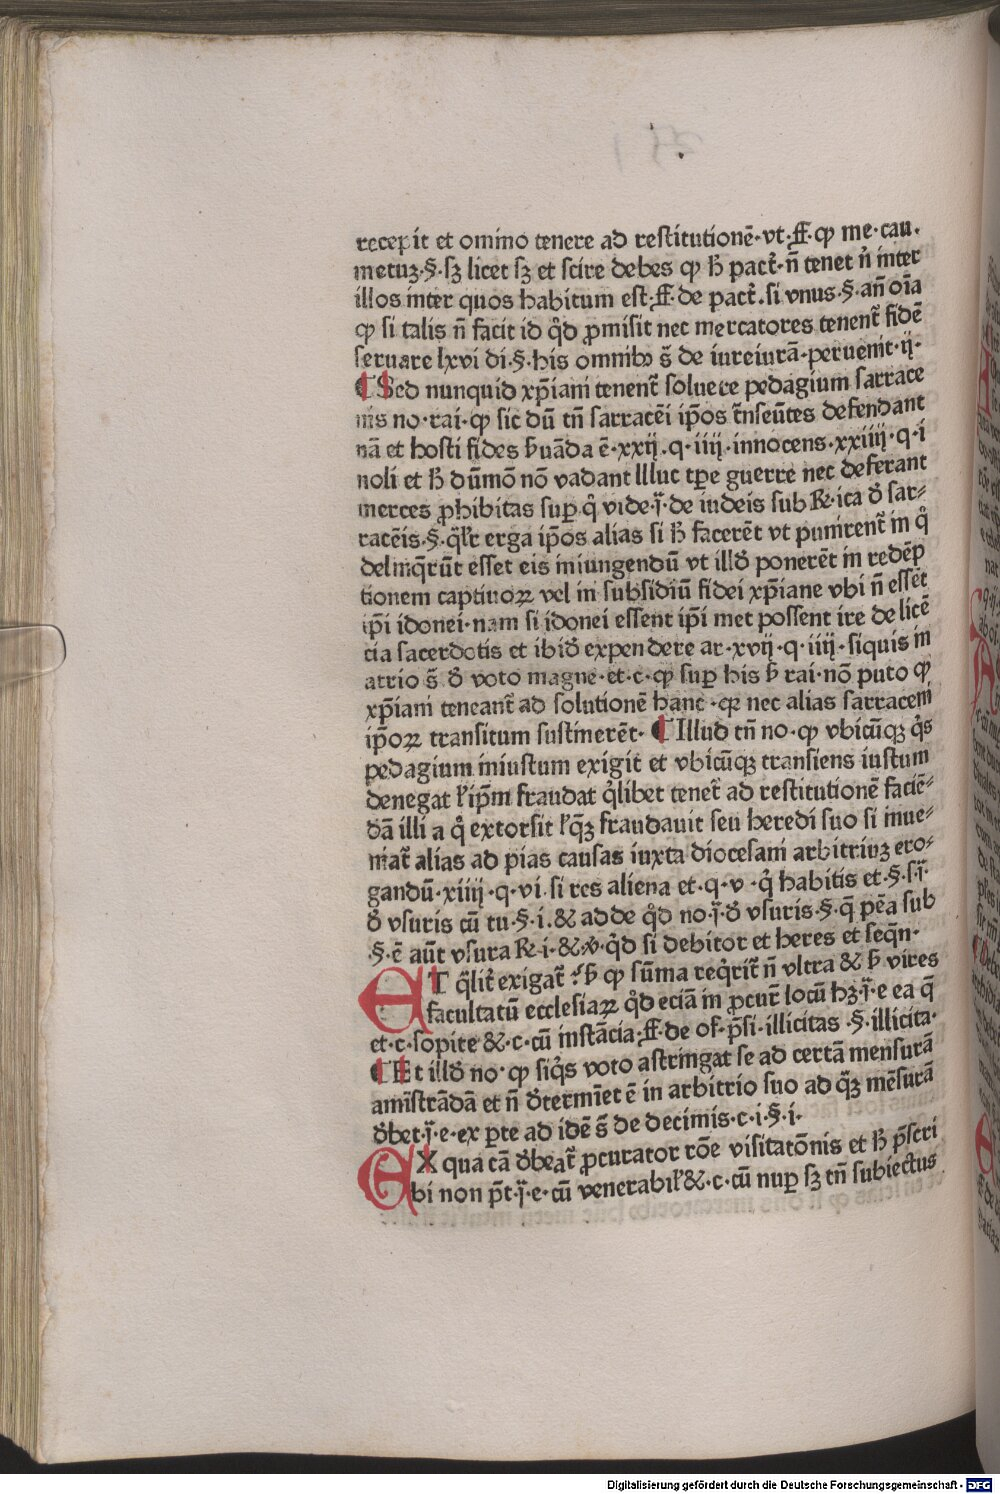 recepit et omino tenere ad restitutionē·vt·ff·qꝫ me·cau·
metuꝫ·§·sꝫ licet sꝫ et scire debes ꝙ ħ pact̄·n̄ tenet n̄ inter
illos inter quos habitum est·ff·de pact̄·si vnus·§·an̄ oīa
ꝙ si talis n̄ facit id q̊d ꝓmisit nec mercatores tenent̄ fidē
seruare lxvi di·§·his omnibꝫ s̄ de iureiurā·peruenit·ij·
¶ Sed nunquid xp̄iani tenent̄ soluere pedagium sarrace
nis no·rai·ꝙ sic dū tn̄ sarracēi ip̄os t̄nseūtes defendant
nā et hosti fides ƀuāda ē·xxij·q·iiij·innocens·xxiiij·q·i
noli et ħ dūmō nō vadant llluc tꝑe guerre nec deferant
merces ꝓhibitas suꝑ q̊ vide·j̄·de iudeis sub Re·ica ð sar-
racēis·§·q̄lr̄ erga ip̄os alias si ħ facerēt vt punirent̄ in q̊
delinq̄rūt esset eis iniungendū vt illð ponerēt in redēp
tionem captiuoꝝ vel in subsidiū fidei xp̄iane vbi n̄ essēt
ip̄i idonei·nam si idonei essent ip̄i met possent ire de licē
cia sacerdotis et ibið expendere ar·xvij·q·iiij·siquis in
atrio s̄ ð voto magne·et·c·ꝙ suꝑ his ƀ rai·nō puto ꝙ
xp̄iani teneant̄ ad solutionē hanc·qꝛ nec alias sarraceni
ip̄oꝝ transitum sustinerēt· ¶ Illud tn̄ no·ꝙ vbicūqꝫ q̊s
pedagium iniustum exigit et vbicūqꝫ transiens iustum
denegat ł ip̄m fraudat q̊libet tenet̄ ad restitutionē faciē-
dā illi a q̊ extorsit ł q̄ꝫ fraudauit seu heredi suo si inue-
niat̄ alias ad pias causas iuxta diocesani arbitriuꝫ ero-
gandū·xiiij·q·vi·si res aliena et·q·v·q̊ habitis et·§·s·j̄·
ð vsuris cū tu·§·i·& adde q̊d no·j̄·ð vsuris·§·q̄ pēa sub
·§·ē aūt vsura Re·i·&·v·q̊d si debitor et heres et seqn̄·
ET q̄lit̄ exigat̄ ·ƀ ꝙ sūma req̊rit̄ n̄ vltra & ƀ vires
facultatū ecclesiaꝝ q̊d eciā in ꝓcut̄ locū hꝫ·j̄·e ea q̄
et·c·sopite &·c·cū instācia·ff·de of·p̄si·illicitas·§·illicita·
¶ Et illð no·ꝙ siq̊s voto astringat se ad certā mensurā
amīstrādā et n̄ ðtermiet ē in arbitrio suo ad q̄ꝫ mēsurā
ðbet·j̄·e·ex ꝑte ad idē s̄ de decimis·c·i·§·i·
EX qua cā ðbeat̄ ꝓcurator rōe visitatōnis et ħ p̄scri
bi non p̄t·j̄·e·cū venerabił &·c·cū nuꝑ sꝫ tn̄ subiectus
Digitalisierung gefördert durch die Deutsche Forschungsgemeinschaft · DFG